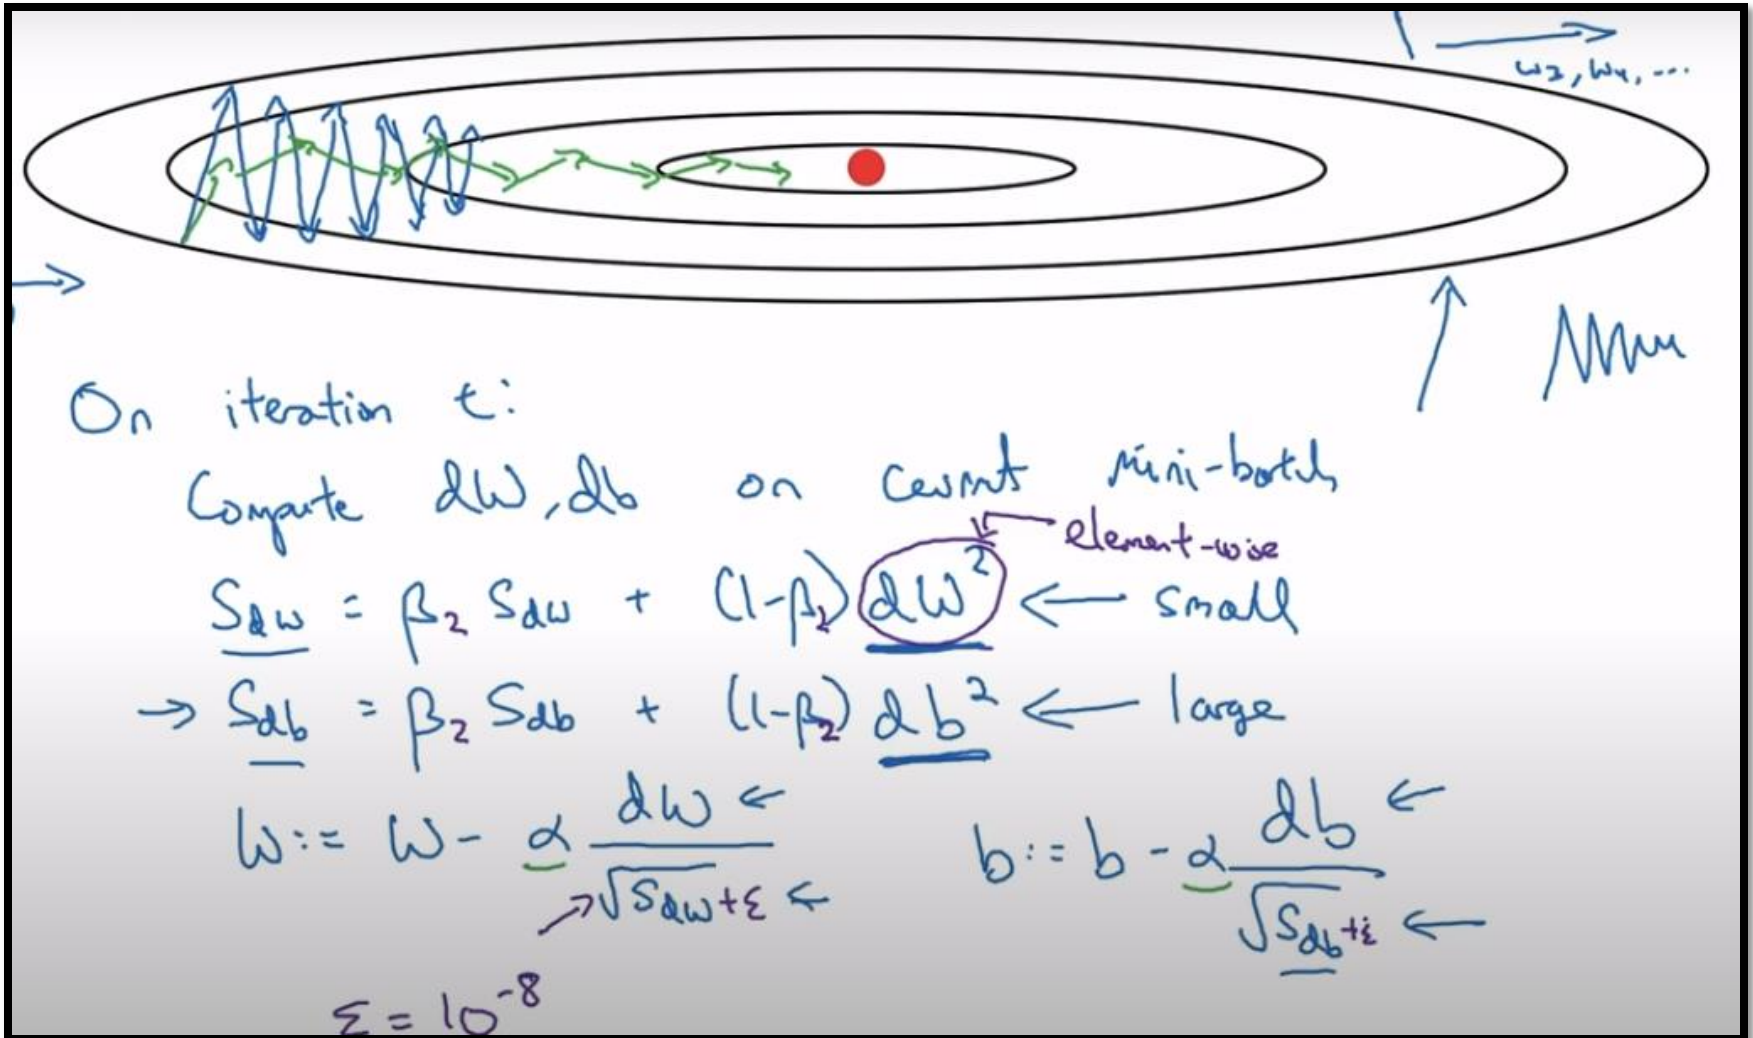 w₃, w₄, ...
On iteration t:
Compute dW, db on current mini-batch
element-wise
S_dw = β₂ S_dw + (1-β₂) dW² ← small
→ S_db = β₂ S_db + (1-β₂) db² ← large
W := W - α dW / √S_dw + ε ← b := b - α db / √S_db + ε ←
ε = 10⁻⁸